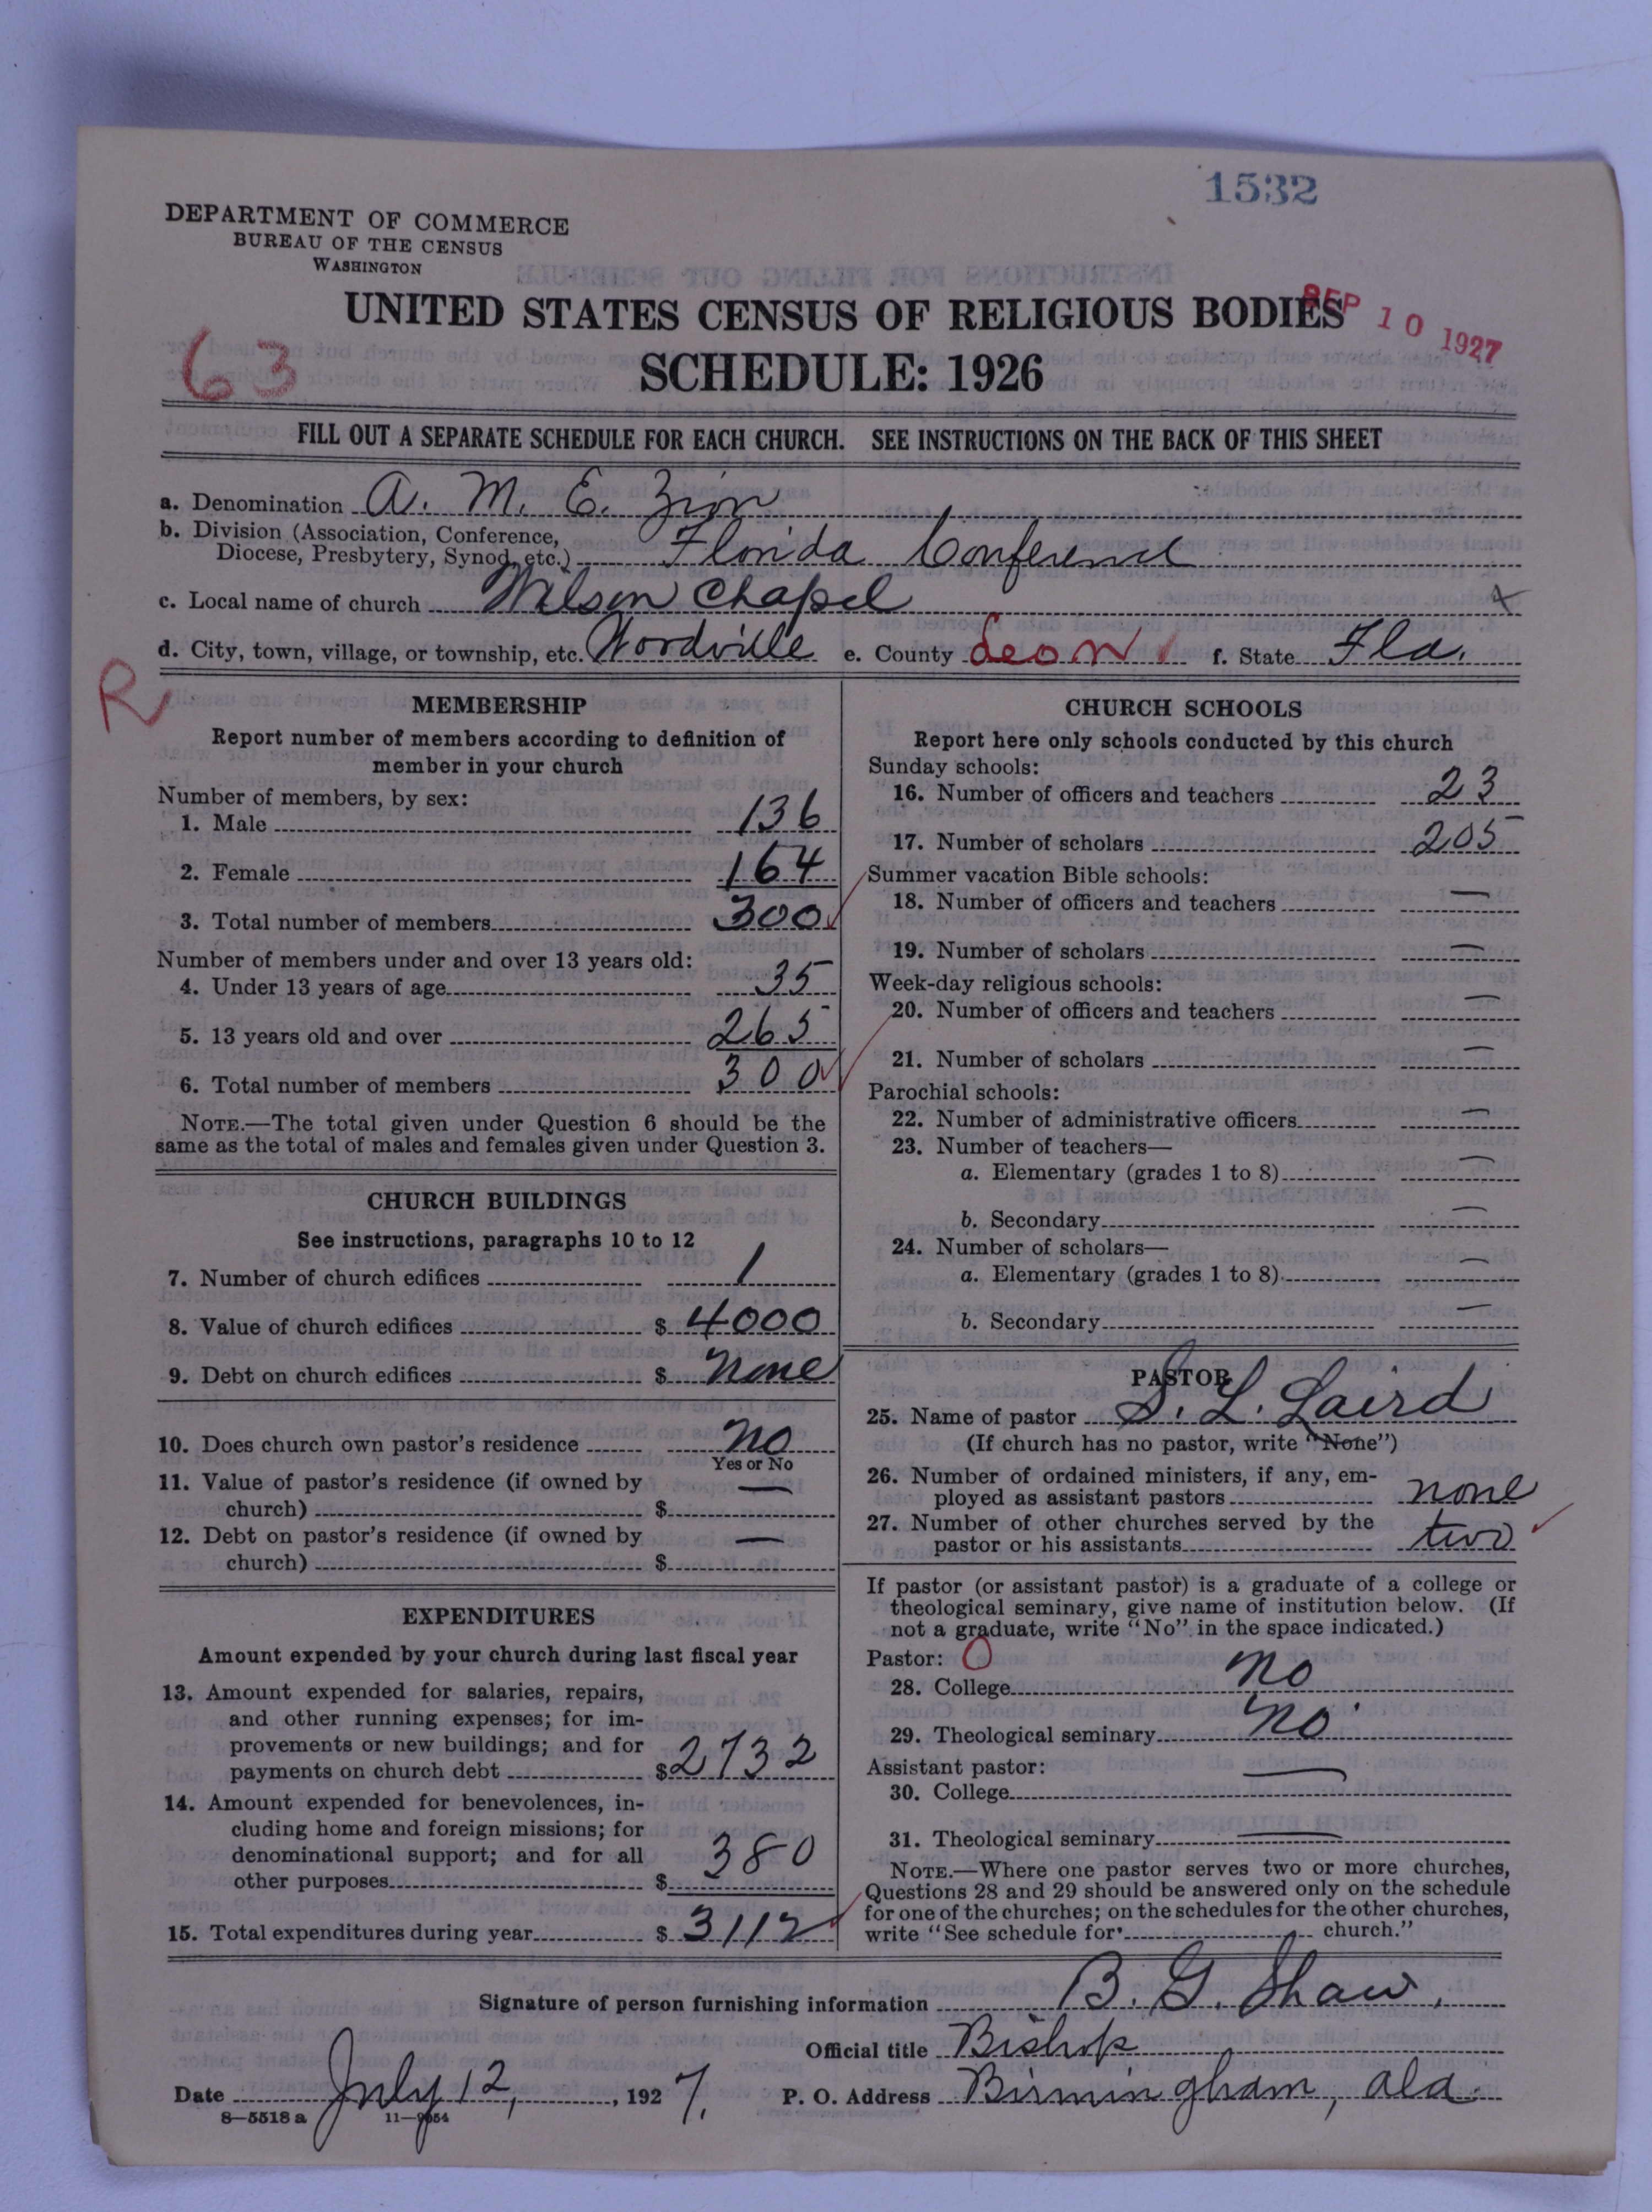 1532
DEPARTMENT OF COMMERCE
BUREAU OF THE CENSUS
WASHINGTON
UNITED STATES CENSUS OF RELIGIOUS BODIES
SEP 10 1927
63
SCHEDULE: 1926
FILL OUT A SEPARATE SCHEDULE FOR EACH CHURCH. SEE INSTRUCTIONS ON THE BACK OF THIS SHEET
a. Denomination A. M. E. Zion
b. Division (Association, Conference,
Diocese, Presbytery, Synod, etc.) Florida Conference
c. Local name of church Wilson Chapel
d. City, town, village, or township, etc. Woodville e. County Leon f. State Fla.
R
MEMBERSHIP
Report number of members according to definition of
member in your church
Number of members, by sex:
1. Male 136
2. Female 164
3. Total number of members 300
Number of members under and over 13 years old:
4. Under 13 years of age 35
5. 13 years old and over 265
6. Total number of members 300
NOTE.—The total given under Question 6 should be the
same as the total of males and females given under Question 3.
CHURCH BUILDINGS
See instructions, paragraphs 10 to 12
7. Number of church edifices 1
8. Value of church edifices $ 4000
9. Debt on church edifices $ none
10. Does church own pastor's residence no
Yes or No
11. Value of pastor's residence (if owned by
church) $ —
12. Debt on pastor's residence (if owned by
church) $ —
EXPENDITURES
Amount expended by your church during last fiscal year
13. Amount expended for salaries, repairs,
and other running expenses; for im-
provements or new buildings; and for
payments on church debt $ 2732
14. Amount expended for benevolences, in-
cluding home and foreign missions; for
denominational support; and for all
other purposes $ 380
15. Total expenditures during year $ 3112
CHURCH SCHOOLS
Report here only schools conducted by this church
Sunday schools:
16. Number of officers and teachers 23
17. Number of scholars 205
Summer vacation Bible schools:
18. Number of officers and teachers —
19. Number of scholars —
Week-day religious schools:
20. Number of officers and teachers —
21. Number of scholars —
Parochial schools:
22. Number of administrative officers —
23. Number of teachers—
a. Elementary (grades 1 to 8) —
b. Secondary —
24. Number of scholars—
a. Elementary (grades 1 to 8) —
b. Secondary —
PASTOR
25. Name of pastor S. L. Laird
(If church has no pastor, write "None")
26. Number of ordained ministers, if any, em-
ployed as assistant pastors none
27. Number of other churches served by the
pastor or his assistants two
If pastor (or assistant pastor) is a graduate of a college or
theological seminary, give name of institution below. (If
not a graduate, write "No" in the space indicated.)
Pastor: O
28. College no
29. Theological seminary no
Assistant pastor:
30. College —
31. Theological seminary —
NOTE.—Where one pastor serves two or more churches,
Questions 28 and 29 should be answered only on the schedule
for one of the churches; on the schedules for the other churches,
write "See schedule for church."
Signature of person furnishing information B. G. Shaw,
Official title Bishop
Date July 12, 1927. P. O. Address Birmingham, Ala.
8—5518 a 11—9054